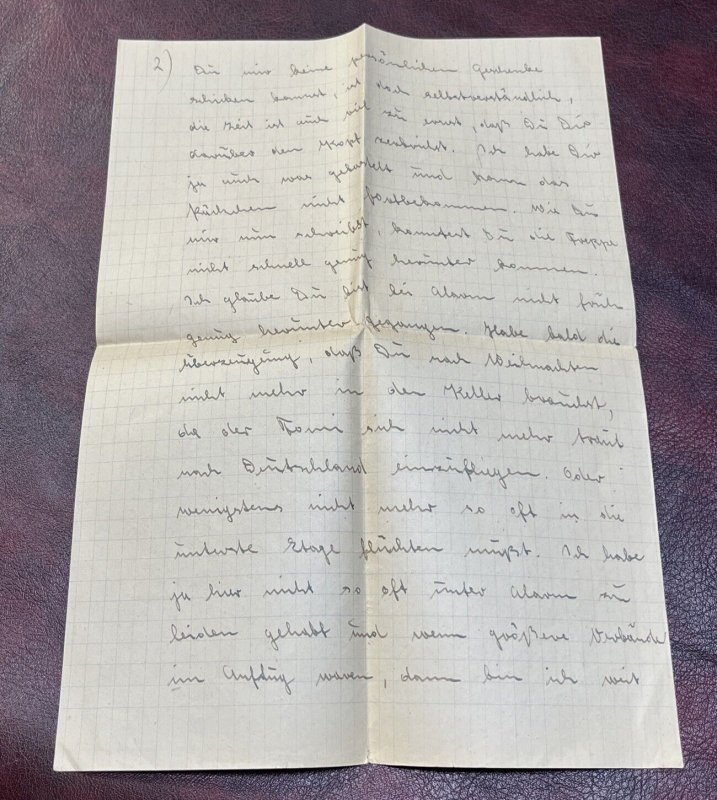 2) Du mir keine persönlichen Geschenke
schicken kannst, ist doch selbstverständlich,
die Zeit ist auch viel zu ernst, daß Du Dir
darüber den Kopf zerbrichst. Ich habe Dir
ja auch was gebastelt und kann das
Päckchen nicht fortbekommen. Wie Du
mir nun schreibst, konntest Du die Treppe
nicht schnell genug herunter kommen.
Ich glaube Du bist bei Alarm nicht früh
genug herunter gegangen. Habe bald die
Überzeugung, daß Du nach Weihnachten
nicht mehr in den Keller brauchst,
da der Tomi sich nicht mehr traut
nach Deutschland einzufliegen. Oder
wenigstens nicht mehr so oft in die
unterste Etage flüchten mußt. Ich habe
ja hier nicht so oft unter Alarm zu
leiden gehabt und wenn größere Verbände
im Anflug waren, dann bin ich weit